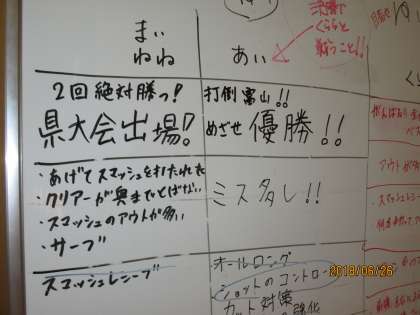 まい
ねね
あい
決勝で
くららと
戦うこと!!
2回絶対勝つ!
県大会出場!!
打倒富山!!
めざせ 優勝!!
・あげてスマッシュを打たれた
・クリアーが奥までとばない
・スマッシュのアウトが多い
・サーブ
ミス多し!!
スマッシュレシーブ
オールロング
ショットのコントロー
カット対策
強化
2018/06/26